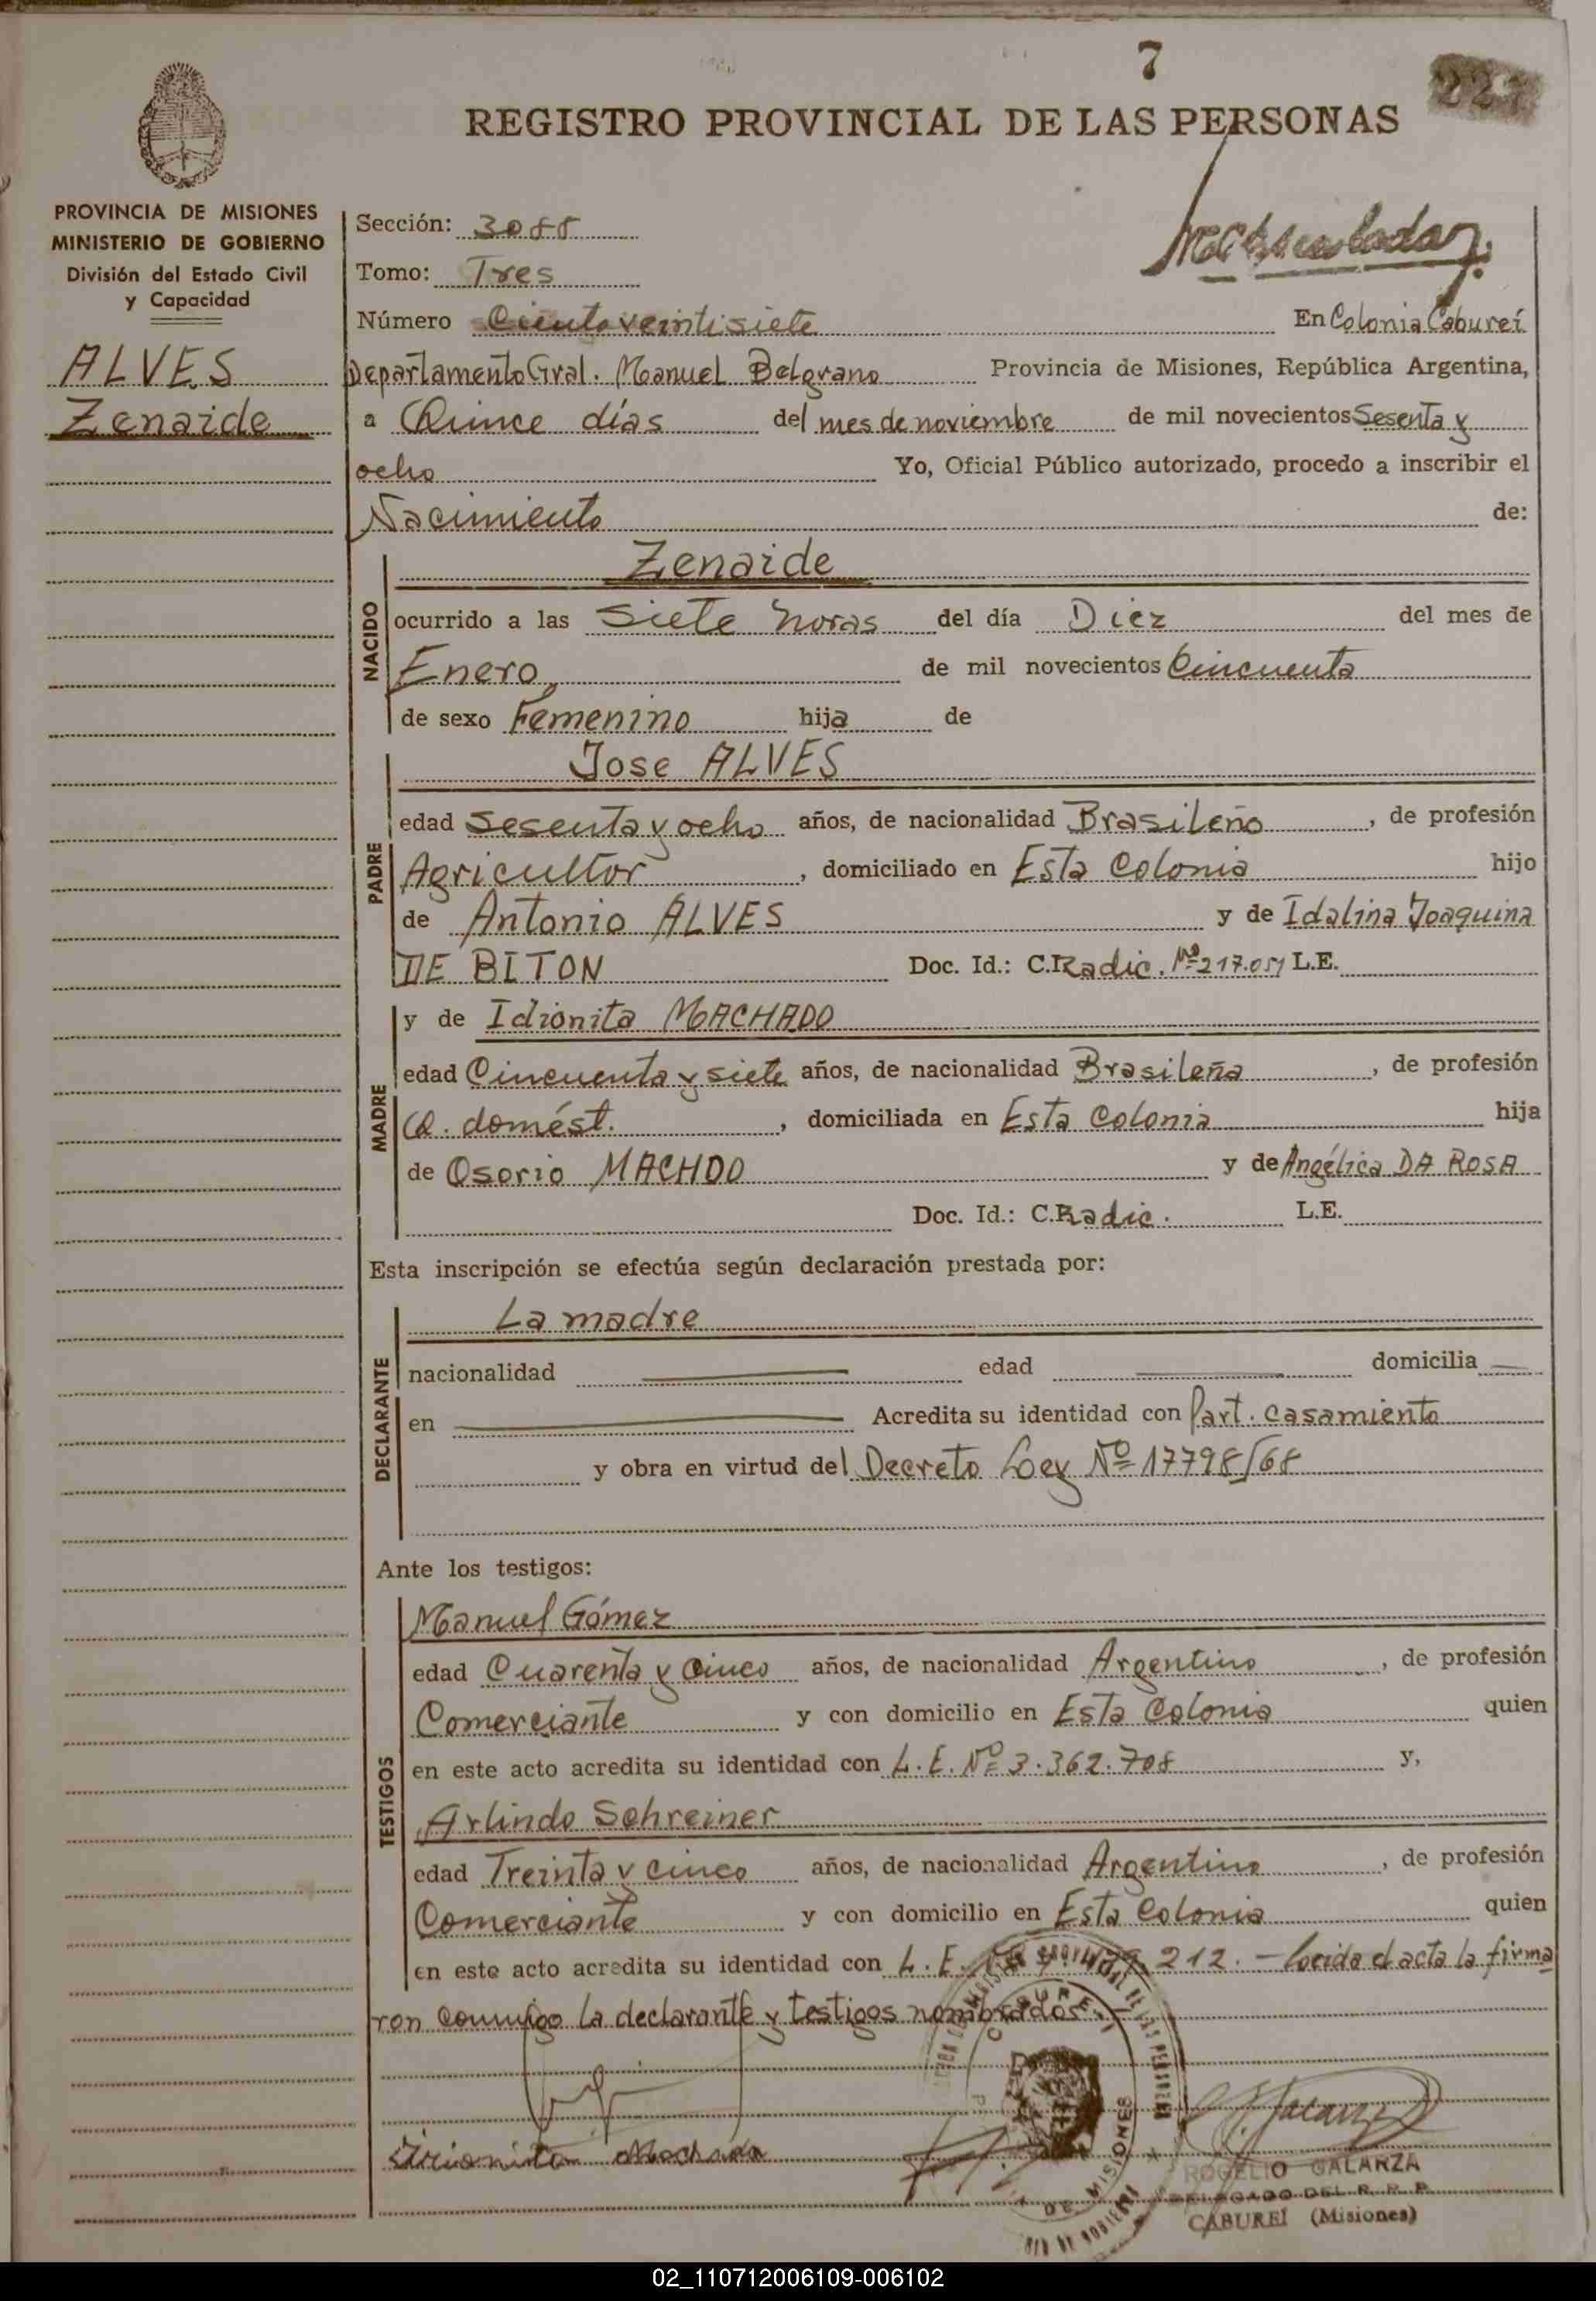 7
REGISTRO PROVINCIAL DE LAS PERSONAS
PROVINCIA DE MISIONES
MINISTERIO DE GOBIERNO
División del Estado Civil
y Capacidad
ALVES
Zenaide
Sección: 3088
Tomo: Tres
Número Ciento veintisiete En Colonia Caburei
Departamento Gral. Manuel Belgrano Provincia de Misiones, República Argentina,
a Quince días del mes de noviembre de mil novecientos Sesenta y
ocho Yo, Oficial Público autorizado, procedo a inscribir el
Nacimiento de:
NACIDO
Zenaide
ocurrido a las Siete horas del día Diez del mes de
Enero de mil novecientos Cincuenta
de sexo Femenino hija de
PADRE
Jose ALVES
edad Sesenta y ocho años, de nacionalidad Brasileño, de profesión
Agricultor, domiciliado en Esta Colonia hijo
de Antonio ALVES y de Idalina Joaquina
DE BITON Doc. Id.: C.Radic. Nº 217.051 L.E.
MADRE
y de Idionita MACHADO
edad Cincuenta y siete años, de nacionalidad Brasileña, de profesión
Q. domést., domiciliada en Esta Colonia hija
de Osorio MACHDO y de Angélica DA ROSA
Doc. Id.: C.Radic. L.E.
Esta inscripción se efectúa según declaración prestada por:
DECLARANTE
La madre
nacionalidad edad domicilia
en Acredita su identidad con Part. Casamiento
y obra en virtud del Decreto Ley Nº 17798/68
Ante los testigos:
TESTIGOS
Manuel Gómez
edad Cuarenta y Cinco años, de nacionalidad Argentino, de profesión
Comerciante y con domicilio en Esta Colonia quien
en este acto acredita su identidad con L.E. Nº 3.362.708 y,
Arlindo Schreiner
edad Treinta y cinco años, de nacionalidad Argentino, de profesión
Comerciante y con domicilio en Esta Colonia quien
en este acto acredita su identidad con L.E. 212.- Leida el acta la firma
ron conmigo la declarante y testigos nombrados
Machado
ROGELIO GALARZA
DELEGADO DEL R. P. P.
CABUREÍ (Misiones)
02_110712006109-006102